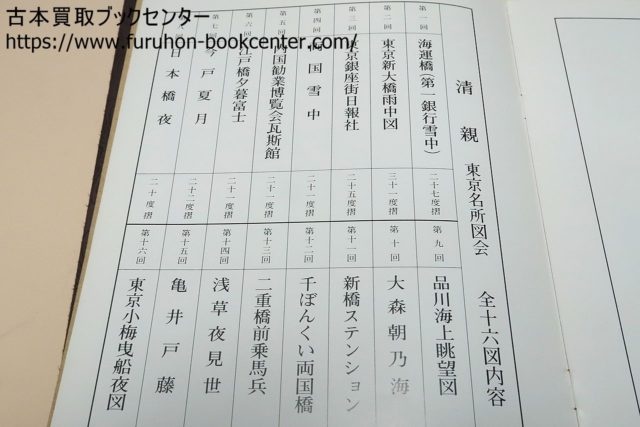 古本買取ブックセンター
https://www.furuhon-bookcenter.com/
清親 東京名所図会 全十六図内容
第一回 海運橋(第一銀行雪中) 二十七度摺
第二回 東京新大橋雨中図 三十一度摺
第三回 東京銀座街日報社 二十五度摺
第四回 両国雪中 二十一度摺
第五回 内国勧業博覧会瓦斯館 二十一度摺
第六回 江戸橋夕暮富士 二十一度摺
第七回 今戸夏月 二十二度摺
回 日本橋夜 二十度摺
第九回 品川海上眺望図
第十回 大森朝乃海
第十一回 新橋ステンション
第十二回 千ぼんくい両国橋
第十三回 二重橋前乗馬兵
第十四回 浅草夜見世
第十五回 亀井戸藤
第十六回 東京小梅曳船夜図